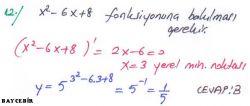 12-) x²-6x+8 fonksiyonuna bakılması gerekir.
(x²-6x+8)' = 2x-6=0
x=3 yerel min. noktası
y = 5^{3²-6.3+8} = 5⁻¹ = 1/5 CEVAP:B
BAYCEBİR